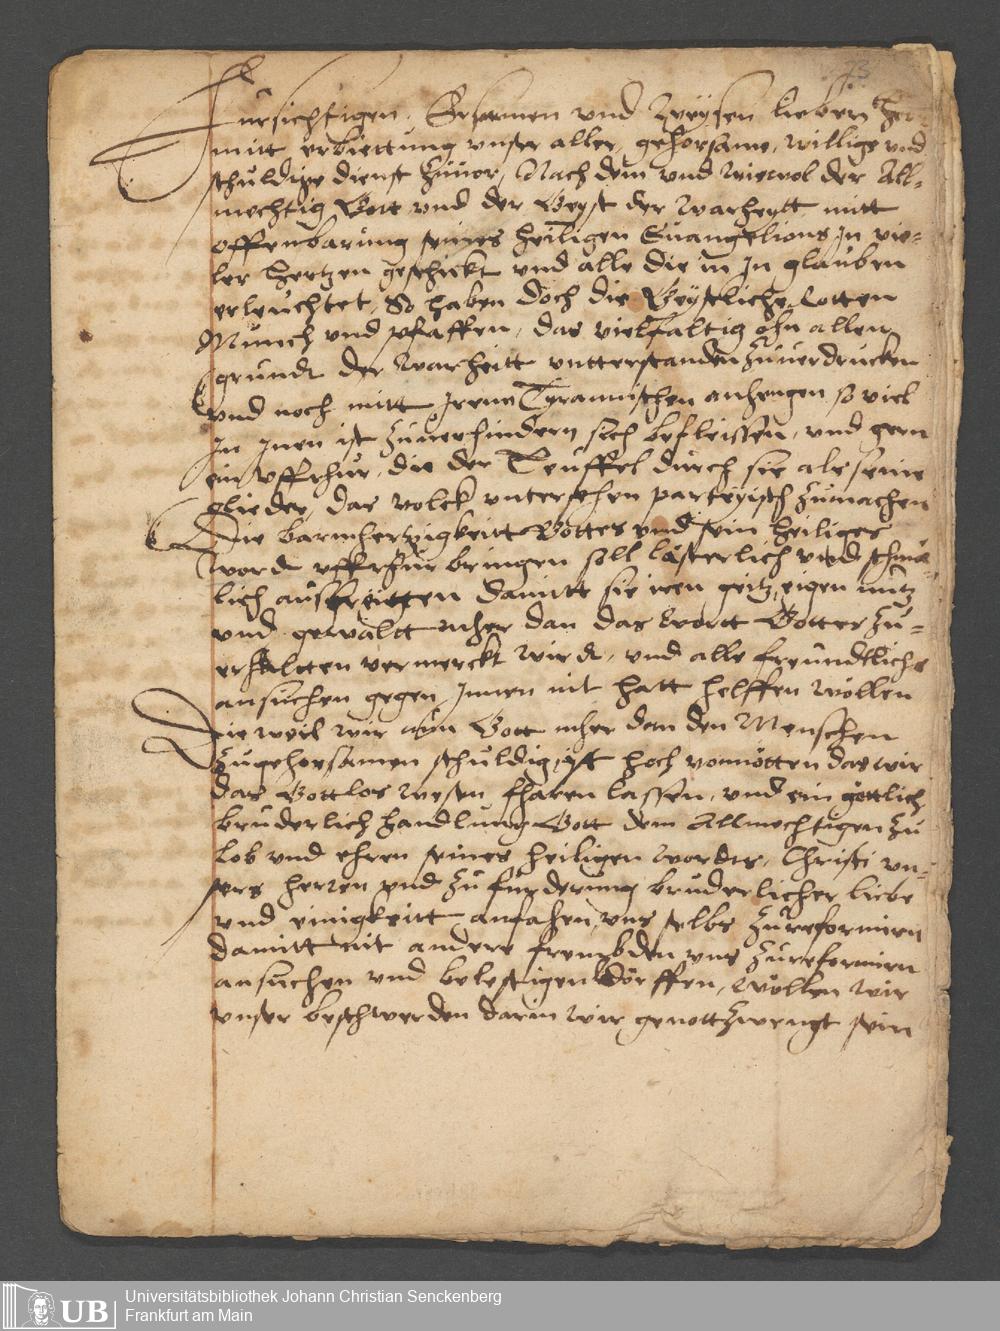 73
Fursichtigen, Ersamen und Weysen lieben Her-
mitt erbiettung vnser aller, gehorsame, willige vnd
schuldige dienst zuuor, Nach dem vnd wiewol der All-
mechtig Gott vnd der Geyst der warheytt mitt
offenbarung seines heiligen Euangelions In vie-
ler hertzen geschickt vnd alle die in In glauben
erleuchtet, So haben doch die Geystliche Rotten
Munch vnd pfaffen, das vielfaltig ohn allen
grundt der warheitt vntterstanden zuuerdrucken
vnd noch mitt Irenn Tyrannischen anhengen so viel
In Inen ist zuuerhindern sich befleissen, vnd gern
ein vffrhur, die der Teuffel durch sie als seine
glieder, das volck vntersehen parteyisch zumachen
Die barmhertzigkeitt Gottes vnd sein heiliges
word vffrhur bringen soll lasterlich vnd schme-
lich außschreitten damitt sie iren geitz, eigen nutz
vnd gewaltt mher dan das wortt Gottes zu-
erhaltten vermerckt wirdt, vnd alle freundtliche
ansuchen gegen Innen nit hatt helffen wöllen
Die weil wir nun Gott mher dan den Menschen
zugehorsamen schuldig, ist hoch vonnötten das wir
das Gottlos wesen fharen lassen, vnd ein göttlich
bruderlich handlung Gott dem Allmechtigen zu
lob vnd ehren seines heiligen wordts, Christi vn-
sers herren vnd zu furderung bruderlicher liebe
vnd einigkeitt anfahen, vns selbs zureformiren
damitt nit andere frembden vns zureformirn
ansuchen vnd belestigen dörffen, wöllen wir
vnser beschwerden darin wir genottzwengt sein
UB
Universitätsbibliothek Johann Christian Senckenberg
Frankfurt am Main